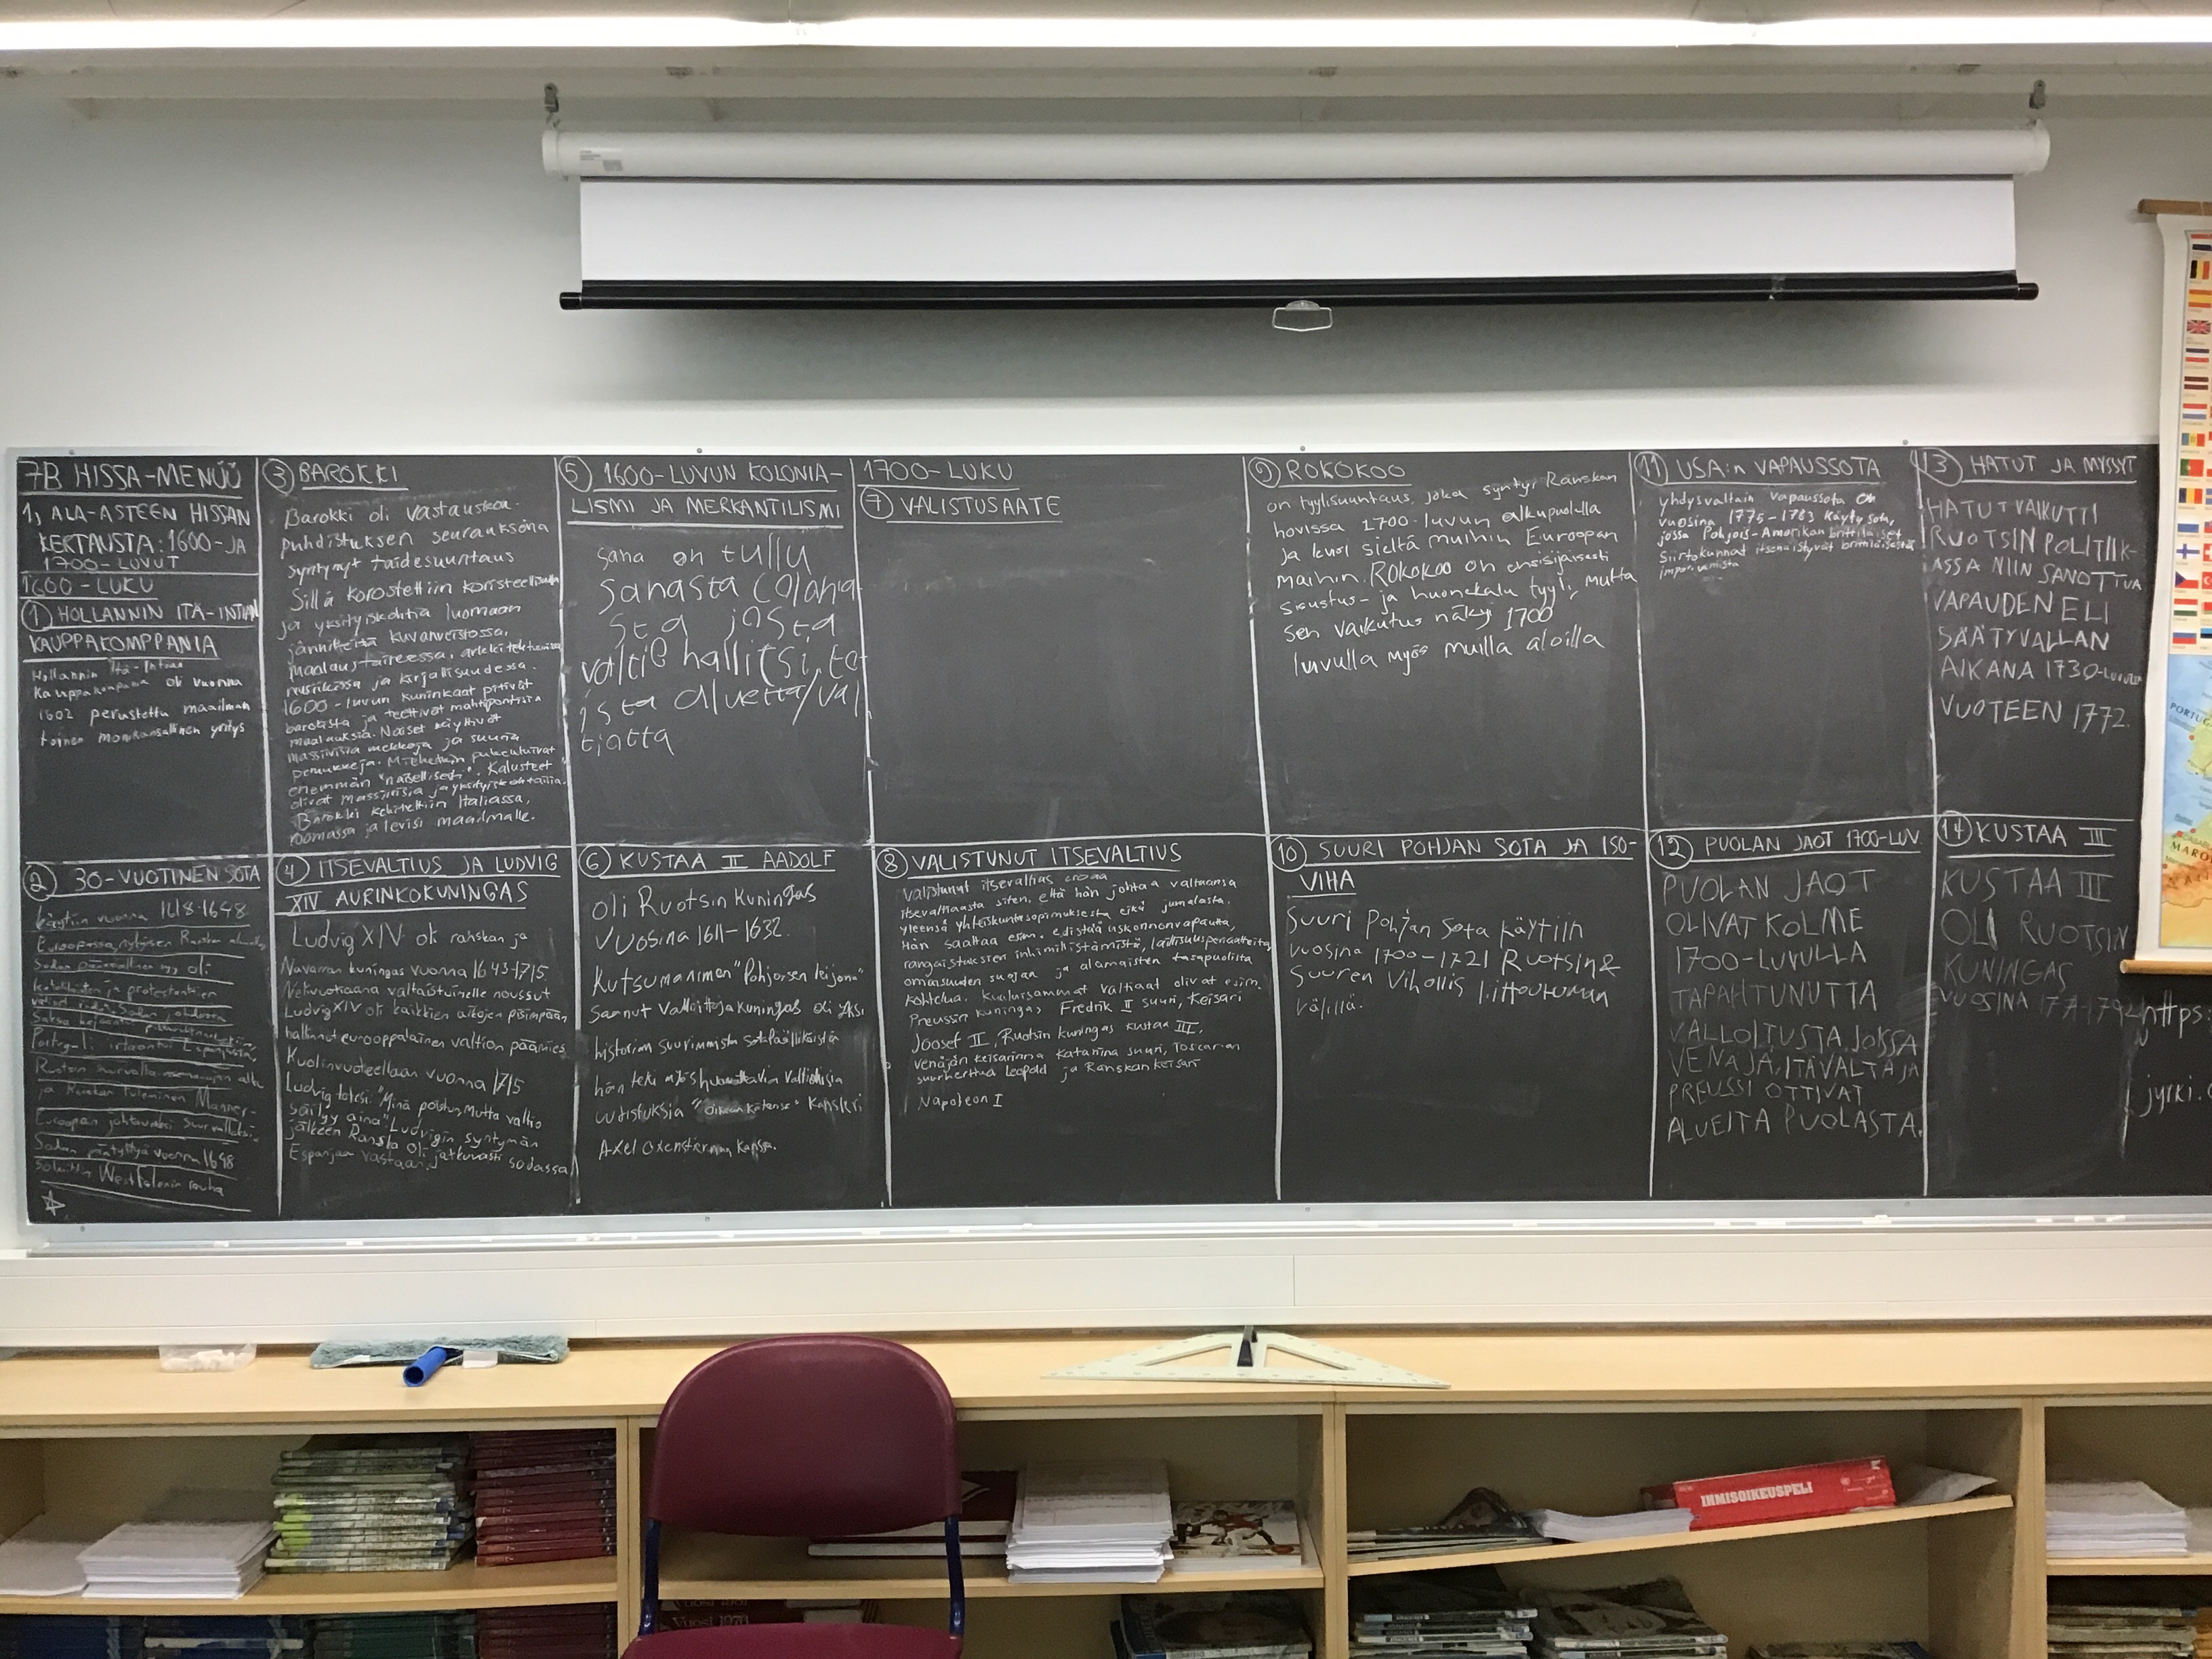 7B HISSA-MENÜÜ
1, ALA-ASTEEN HISSAN
KERTAUSTA: 1600- JA
1700-LUVUT
1600-LUKU
1 HOLLANNIN ITÄ-INTIAN
KAUPPAKOMPPANIA
Hollannin Itä-Intian
oli vuonna
1602 perustettu maailman
toinen monikansallinen yritys
2 30-VUOTINEN SOTA
käytiin vuonna 1618-1648
Euroopassa, nykyisen Ranskan
Sodan oli
ja protestanttien
Portugali irtaantui Espanjasta,
Ruotsin alku
ja Ranskan tuleminen Manner-
Euroopan johtavaksi suurvallaksi.
Sodan päätyttyä vuonna 1648
solmittiin Westfalenin rauha
3 BAROKKI
Barokki oli vastauskon-
puhdistuksen seurauksena
syntynyt taidesuuntaus
Sillä korostettiin koristeellisuutta
ja yksityiskohtia luomaan
jännitteitä kuvanveistossa,
maalaustaiteessa, arkkitehtuurissa
musiikissa ja kirjallisuudessa.
1600-luvun kuninkaat pitivät
barokista ja teettivat mahtipontisia
maalauksia. Naiset käyttivät
massiivisia mekkoja ja suuria
peruukkeja. Miehetkin pukeutuivat
enemmän "naisellisesti". Kalusteet
olivat massiivisia ja yksityiskohtaisia.
Barokki kehitettiin Italiassa,
roomassa ja levisi maailmalle.
4 ITSEVALTIUS JA LUDVIG
XIV AURINKOKUNINGAS
Ludvig XIV oli ranskan ja
Navarran kuningas vuonna 1643-1715
Nelivuotiaana valtaistuimelle noussut
Ludvig XIV oli kaikkien aikojen pisimpään
hallinnut eurooppalainen valtion päämies
Kuolinvuoteellaan vuonna 1715
Ludvig totesi: "Minä poistun, mutta valtio
säilyy aina" Ludvigin syntymän
jälkeen Ranska oli jatkuvasti sodassa
Espanjaa vastaan.
5 1600-LUVUN KOLONIA-
LISMI JA MERKANTILISMI
sana on tullu
sanasta Colonia
sta josta
valtio hallitsi to
ista aluetta/val
tiotta
6 KUSTAA II AADOLF
oli Ruotsin Kuningas
Vuosina 1611-1632.
Kutsumanimen "Pohjolan leijona"
Saanut Valloittajakuningas oli yksi
historian suurimmista sotapäälliköistä
hän teki myös huomattavia valtiollisia
uudistuksia " " Kansleri
Axel Oxenstiernan kanssa.
1700-LUKU
7 VALISTUSAATE
8 VALISTUNUT ITSEVALTIUS
Valistunut itsevaltias eroaa
itsevaltiaasta siten, että hän johtaa valtaansa
yleensä yhteiskuntasopimuksesta eikä jumalasta.
Hän saattaa esim. edistää uskonnonvapautta,
rangaistuksien inhimillistämistä, laillisuusperiaatteita,
omaisuuden suojan ja alamaisten tasapuolista
kohtelua. Kuuluisammat valtiaat olivat esim.
Preussin kuningas Fredrik II suuri, keisari
Joosef II, Ruotsin kuningas kustaa III,
venäjän keisarinna Katariina suuri, Toscanan
suurherttua Leopold ja Ranskan keisari
Napoleon I
9 ROKOKOO
on tyylisuuntaus, joka syntyi Ranskan
hovissa 1700-luvun alkupuolella
ja levisi sieltä muihin Euroopan
maihin. Rokokoo on ensisijaisesti
sisustus- ja huonekalu tyyli, mutta
sen vaikutus näkyi 1700
luvulla myös muilla aloilla
10 SUURI POHJAN SOTA JA ISO-
VIHA
Suuri Pohjan Sota Käytiin
vuosina 1700-1721 Ruotsin&
Suuren Vihollis liittouman
välillä.
11 USA:n VAPAUSSOTA
yhdysvaltain vapaussota on
vuosina 1775-1783 käyty sota,
jossa Pohjois-Amerikan brittiläiset
Siirtokunnat itsenäistyivät brittiläisestä
imperiumista
12 PUOLAN JAOT 1700-LUV.
PUOLAN JAOT
OLIVAT KOLME
1700-LUVULLA
TAPAHTUNUTTA
VALLOITUSTA, JOSSA
VENÄJÄ, ITÄVALTA JA
PREUSSI OTTIVAT
ALUEITA PUOLASTA.
13 HATUT JA MYSSYT
HATUT VAIKUTTI
RUOTSIN POLITIIK-
ASSA NIIN SANOTTUA
VAPAUDEN ELI
SÄÄTYVALLAN
AIKANA 1730-LUVULTA
VUOTEEN 1772.
14 KUSTAA III
KUSTAA III
OLI RUOTSIN
KUNINGAS
VUOSINA 1771-1792
https:
jyrki.
PORTUG
MARO
IHMISOIKEUSPELI
Vuosi 1976